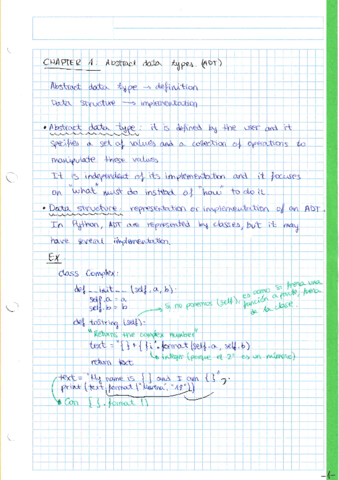 CHAPTER 1: Abstract data types (ADT)
Abstract data type → definition
Data structure → implementation
• Abstract data type: it is defined by the user and it
specifies a set of values and a colection of operations to
manipulate those values.
It is independent of its implementation and it focuses
on "what" must do instead of "how" to do it.
• Data structure: representation or implementation of an ADT.
In Python, ADT are represented by classes, but it may
have several implementation.
Ex
class Complex:
def __init__(self, a, b):
self.a = a
self.b = b
Si no ponemos (self), es como si fuera una
función a parte, fuera
de la clase.
def toString(self):
"Returns the complex number"
text = "{} + {}i".format(self.a, self.b)
Integer (porque el 2º es un número)
return text
text = "My name is {} and I am {}";
print(text.format("Martha", "19"))
* Con {}.format ()
-1-